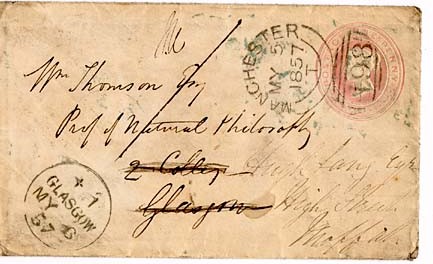 MANCHESTER
MY 5
1857
T
498
Wm Thomson Esq
Prof of Natural Philosophy
2 College
Glasgow
Hugh Lang Esqr
High Street
Moffat
+ 1
GLASGOW
MY 6
57